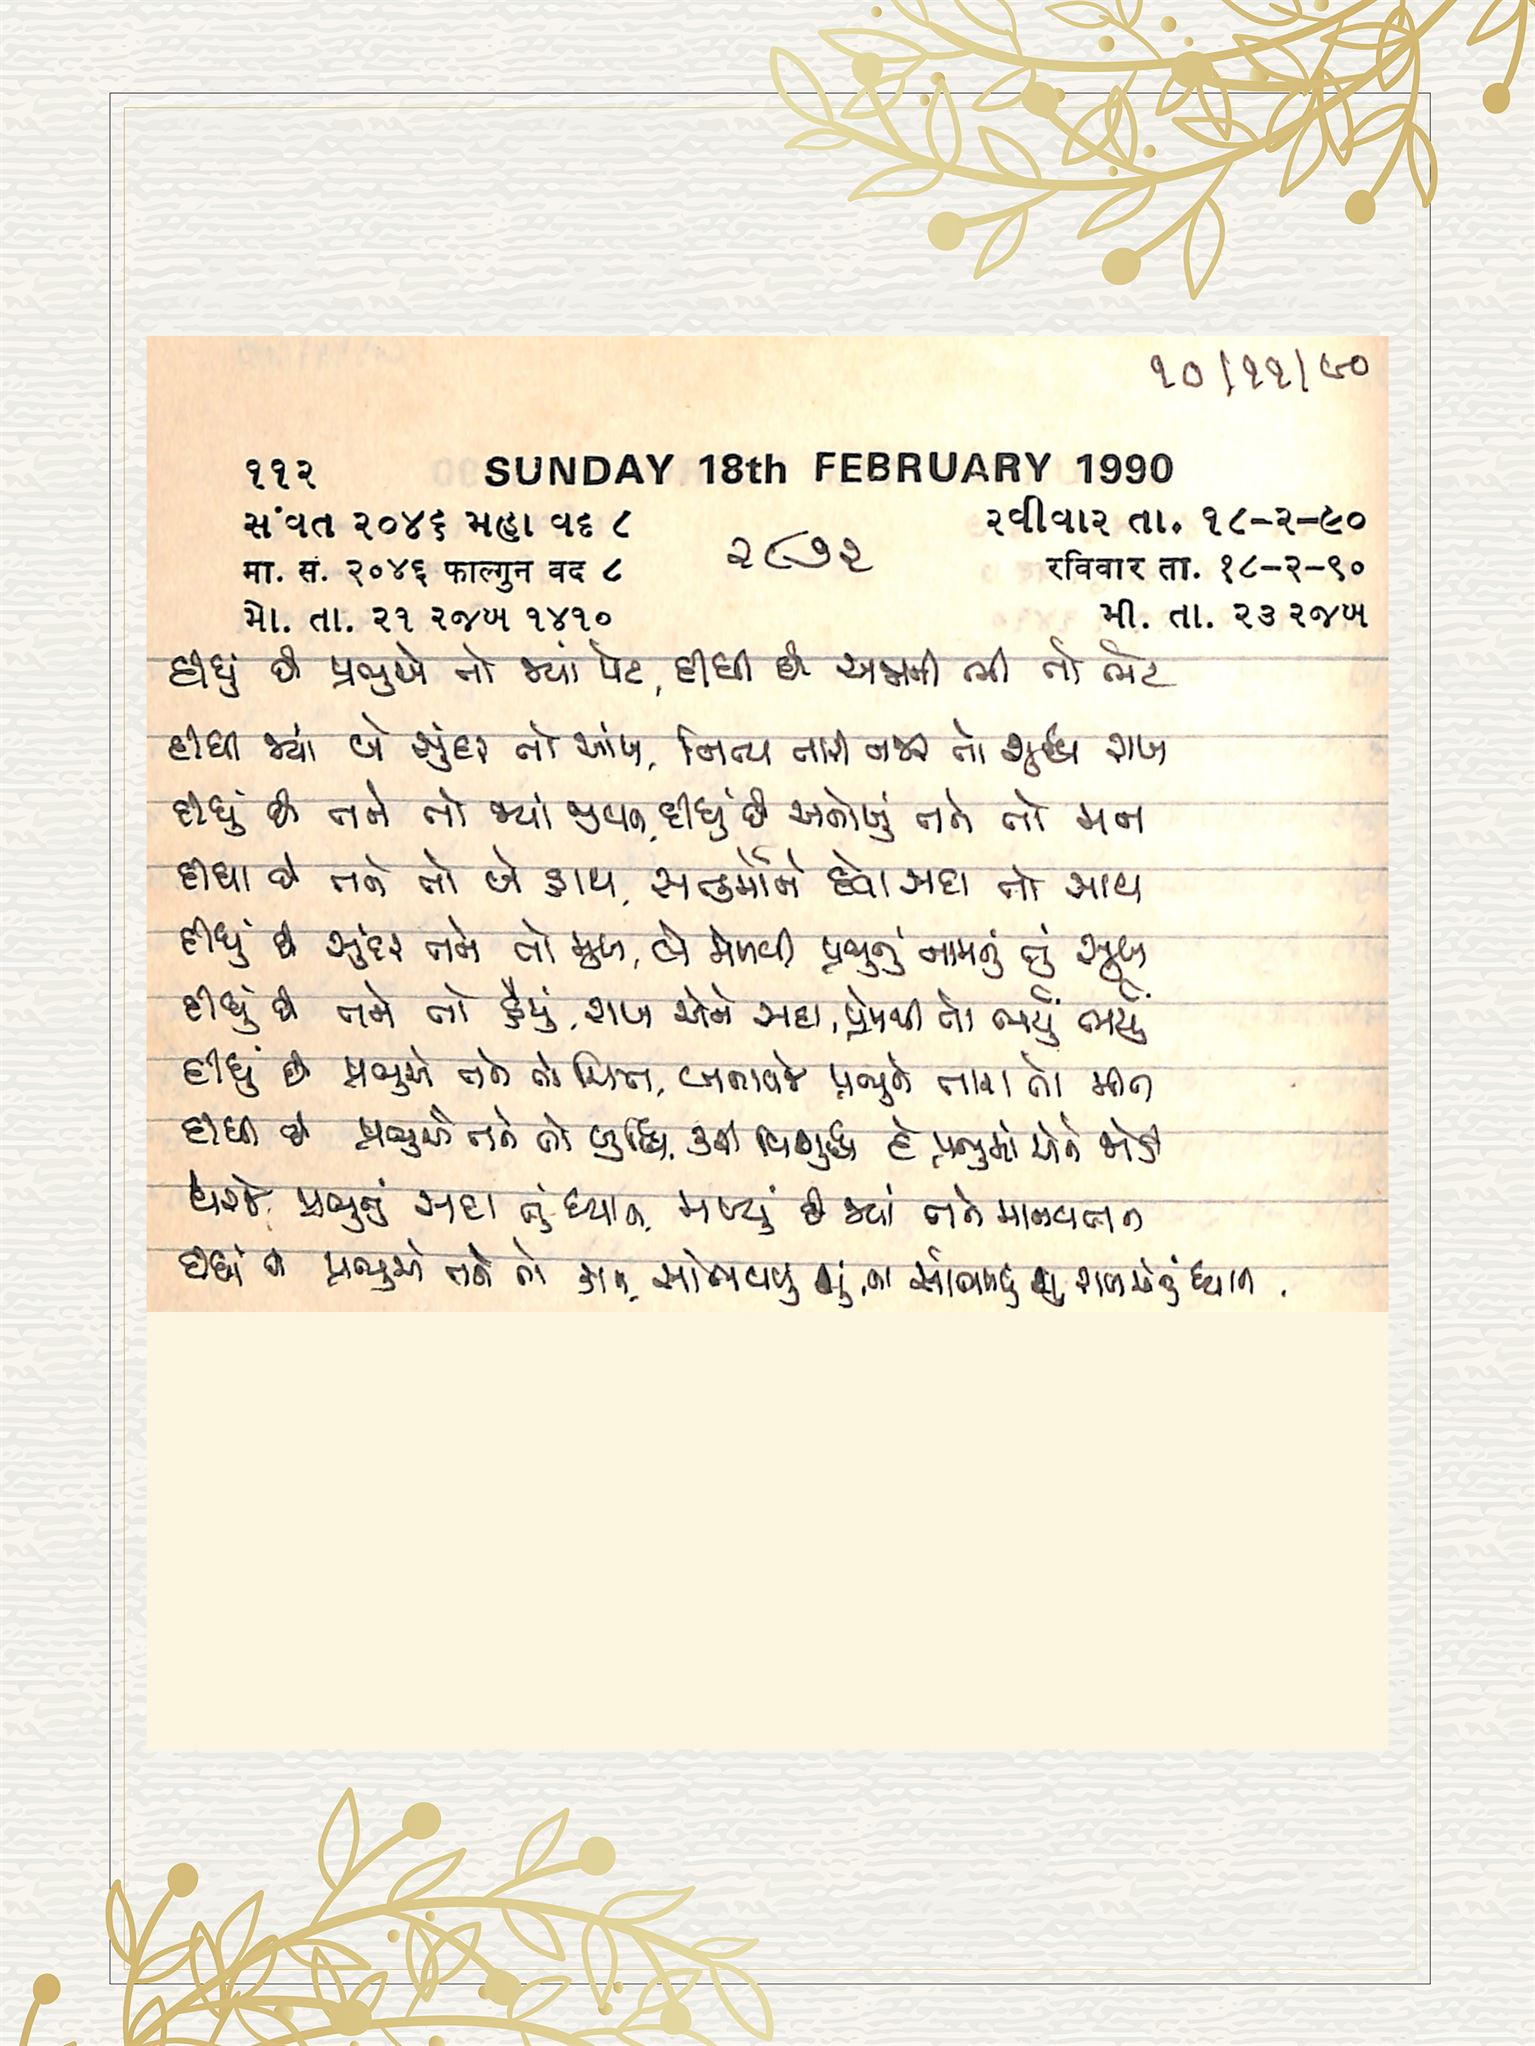 ૧૦/૧૧/૯૦
૧૧૨ SUNDAY 18th FEBRUARY 1990
સંવત ૨૦૪૬ મહા વદ ૮ રવીવાર તા. ૧૮-૨-૯૦
૨૮૭૨
मा. सं. २०४६ फाल्गुन वद ८ रविवार ता. १८-२-९०
મો. તા. ૨૧ રજબ ૧૪૧૦ મી. તા. ૨૩ રજબ
દીધું છે પ્રભુએ તો જ્યાં પેટ, દીધી છે અન્નની ભી તો ભેટ
દીધી જ્યાં બે સુંદર તો આંખ, નિત્ય તારી નજર તો શુદ્ધ રાખ
દીધું છે તને તો જ્યાં જીવન, દીધું છે અનોખું તને તો મન
દીધા છે તને તો બે હાથ, સત્કર્મોને દેવા સદા તો સાથ
દીધું છે સુંદર તને તો મુખ, લે મેળવી પ્રભુનું નામનું તું સુખ
દીધું છે તને તો હૈયું, રાખ એને સદા, પ્રેમથી તો ભર્યું ભર્યું
દીધું છે પ્રભુએ તને તો ચિત્ત, બનાવજે પ્રભુને તારા તો મીત
દીધી છે પ્રભુએ તને તો બુદ્ધિ, કરી વિશુદ્ધ દે પ્રભુમાં એને જોડી
ધરજે પ્રભુનું સદા તું ધ્યાન, મળ્યું છે જ્યાં તને માનવતન
દીધાં છે પ્રભુએ તને તો કાન, સાંભળવું શું, ના સાંભળવું શું રાખ એનું ધ્યાન.